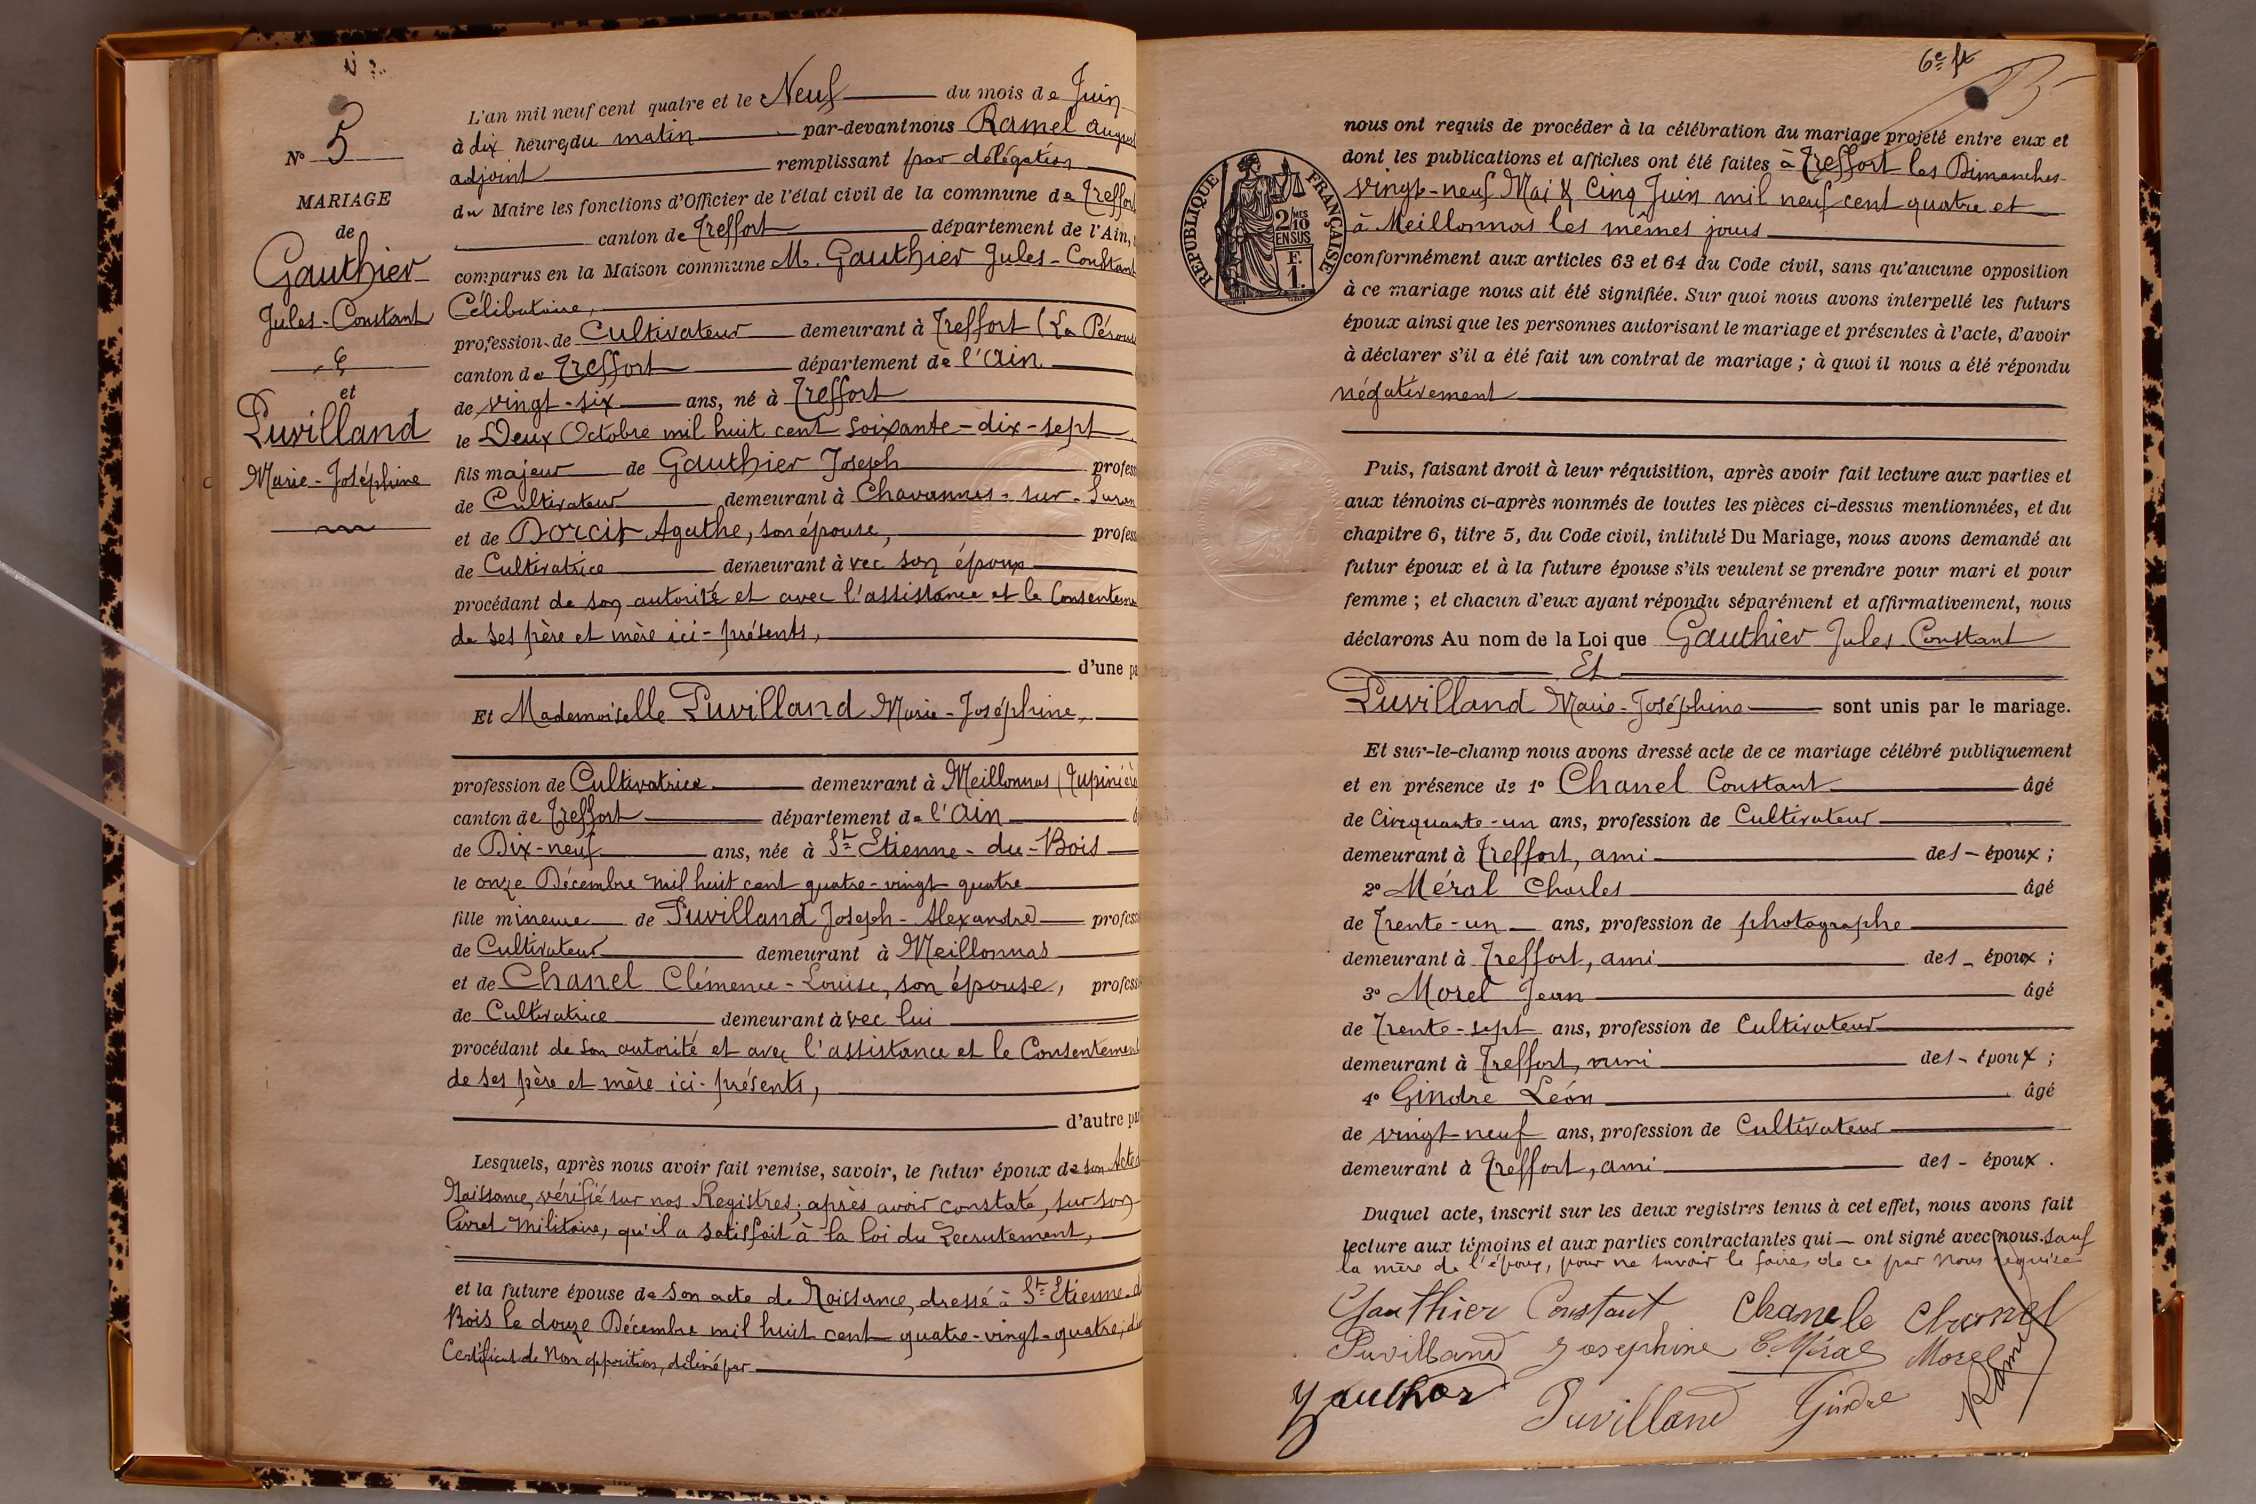 N° 5
MARIAGE
de
Gauthier
Jules-Constant
et
Puvilland
Marie-Joséphine
L'an mil neuf cent quatre et le Neuf du mois de Juin
à dix heures du matin par-devant nous Ramel August
adjoint remplissant par délégation
du Maire les fonctions d'Officier de l'état civil de la commune de Treffort
canton de Treffort département de l'Ain,
comparus en la Maison commune M. Gauthier Jules-Constant
Célibataire,
profession de Cultivateur demeurant à Treffort (La Pérouse
canton de Treffort département de l'Ain
de vingt-six ans, né à Treffort
le Deux Octobre mil huit cent soixante-dix-sept
fils majeur de Gauthier Joseph profess
de Cultivateur demeurant à Chavannes-sur-Suran
et de Dorcit Agathe, son épouse, profess
de Cultivatrice demeurant avec son époux
procédant de son autorité et avec l'assistance et le Consenteme
de ses père et mère ici-présents,
d'une pa
Et Mademoiselle Puvilland Marie-Joséphine,
profession de Cultivatrice demeurant à Meillonnas (Tupinière
canton de Treffort département de l'Ain
de Dix-neuf ans, née à St Etienne-du-Bois
le onze Décembre mil huit cent quatre-vingt quatre
fille mineure de Puvilland Joseph-Alexandre profess
de Cultivateur demeurant à Meillonnas
et de Chanel Clémence-Louise, son épouse, professi
de Cultivatrice demeurant avec lui
procédant de son autorité et avec l'assistance et le Consentement
de ses père et mère ici-présents,
d'autre pa
Lesquels, après nous avoir fait remise, savoir, le futur époux de son Acte
Naissance, vérifié sur nos Registres; après avoir constaté, sur son
livret militaire, qu'il a satisfait à la loi du recrutement,
et la future épouse de son acte de Naissance, dressé à St Etienne-d
Bois le douze Décembre mil huit cent quatre-vingt-quatre; du
Certificat de Non opposition, délivré par
6e ft
RÉPUBLIQUE FRANÇAISE
2/10 MES
EN SUS
F.
1.
nous ont requis de procéder à la célébration du mariage projeté entre eux et
dont les publications et affiches ont été faites à Treffort les Dimanches
vingt-neuf Mai & Cinq Juin mil neuf cent quatre et
à Meillonnas les mêmes jours
conformément aux articles 63 et 64 du Code civil, sans qu'aucune opposition
à ce mariage nous ait été signifiée. Sur quoi nous avons interpellé les futurs
époux ainsi que les personnes autorisant le mariage et présentes à l'acte, d'avoir
à déclarer s'il a été fait un contrat de mariage ; à quoi il nous a été répondu
négativement
Puis, faisant droit à leur réquisition, après avoir fait lecture aux parties et
aux témoins ci-après nommés de toutes les pièces ci-dessus mentionnées, et du
chapitre 6, titre 5, du Code civil, intitulé Du Mariage, nous avons demandé au
futur époux et à la future épouse s'ils veulent se prendre pour mari et pour
femme ; et chacun d'eux ayant répondu séparément et affirmativement, nous
déclarons Au nom de la Loi que Gauthier Jules Constant
Et
Puvilland Marie-Joséphine sont unis par le mariage.
Et sur-le-champ nous avons dressé acte de ce mariage célébré publiquement
et en présence de 1° Chanel Constant âgé
de Cinquante-un ans, profession de Cultivateur
demeurant à Treffort, ami des époux ;
2° Méral Charles âgé
de Trente-un ans, profession de photographe
demeurant à Treffort, ami des époux ;
3° Morel Jean âgé
de Trente-sept ans, profession de Cultivateur
demeurant à Treffort, ami des époux ;
4° Gindre Léon âgé
de vingt-neuf ans, profession de Cultivateur
demeurant à Treffort, ami des époux.
Duquel acte, inscrit sur les deux registres tenus à cet effet, nous avons fait
lecture aux témoins et aux parties contractantes qui ont signé avec nous. sauf
la mère de l'époux, pour ne savoir le faire, de ce par nous requise
Gauthier Constant Chanel Chanel
Puvilland Josephine C. Méral Morel
Gauthier Puvilland Gindre Ramel